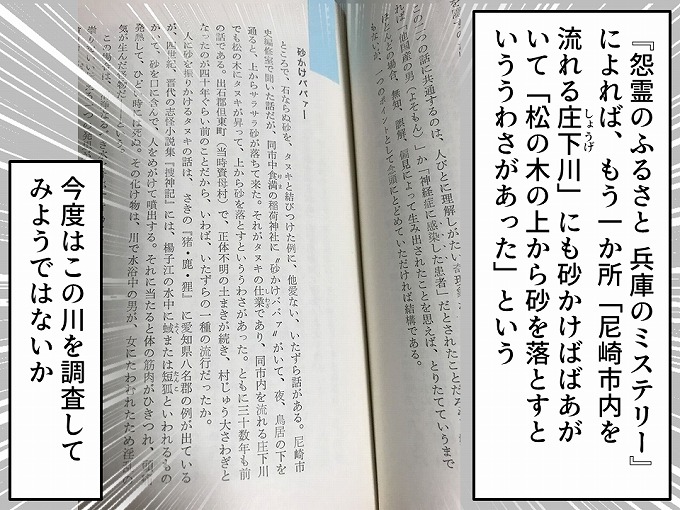 『怨霊のふるさと 兵庫のミステリー』
によれば、もう一か所「尼崎市内を
流れる庄下川」にも砂かけばばあが
いて「松の木の上から砂を落とすと
いううわさがあった」という
この二つの話に共通するのは、人びとに理解しがたい
れば「他国産の男(よそもん)」か「神経症に感染した患者」だとされたことだろ
ほとんどの場合、無知、誤解、偏見によって生み出されたことを思えば、とりたてていうまで
もないが、一つのポイントとして念頭にとどめていただければ結構である。
砂かけババァー
ところで、石ならぬ砂を、タヌキと結びつけた例に、他愛ない、いたずら話がある。尼崎市
史編修室で聞いた話だが、同市中食満の稲荷神社に〝砂かけババァ〟がいて、夜、鳥居の下を
通ると、上からサラサラ砂が落ちて来た。それがタヌキの仕業であり、同市内を流れる庄下川
でも松の木にタヌキが昇って、上から砂を落とすといううわさがあった。ともに三十数年も前
の話である。出石郡但東町(当時資母村)で、正体不明の土まきが続き、村じゅう大さわぎと
なったのが四十年ぐらい前のことだから、いわば、いたずらの一種の流行だったか。
人に砂を振りかけるタヌキの話は、さきの『猪・鹿・狸』に愛知県八名郡の例が出ている
が、四世紀、晋代の志怪小説集『捜神記』には、楊子江の水中に蜮または短狐といわれるもの
がいて、砂を口に含んで、人をめがけて噴出する。それに当たると体の筋肉がひきつれ、頭痛
発熱して、ひどい時には死ぬ。その化け物は、川で水浴中の男が、女にたわむれたため淫乱の
気が生んだ怪物だ
今度はこの川を調査して
みようではないか